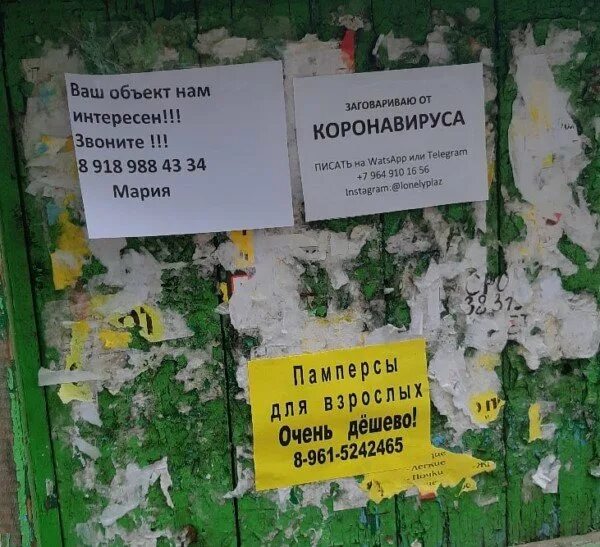 Ваш объект нам
интересен!!!
Звоните !!!
8 918 988 43 34
Мария
ЗАГОВАРИВАЮ ОТ
КОРОНАВИРУСА
ПИСАТЬ на WatsApp или Telegram
+7 964 910 16 56
Instagram.@lonelyplaz
Памперсы
для взрослых
Очень дёшево!
8-961-5242465
Легкие
Почки